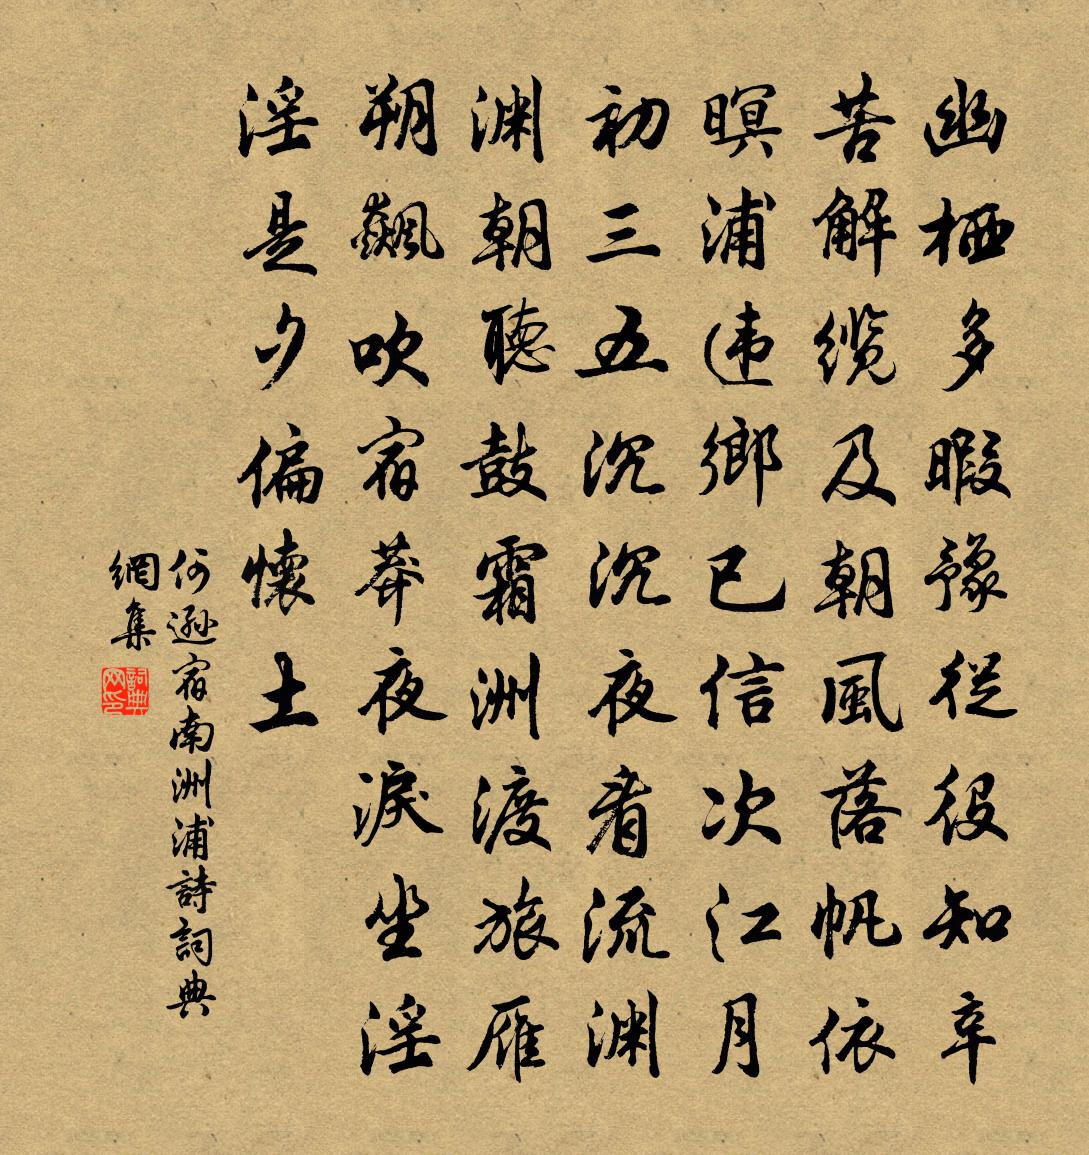 幽栖多暇豫從役知辛
苦解缆及朝風落帆依
暝浦违鄉已信次江月
初三五沉沉夜看流渊
渊朝聽鼓霜洲渡旅雁
朔飆吹宿莽夜淚坐淫
淫是夕偏懷土
何遜宿南洲浦詩詞典
網集
詞典
网印